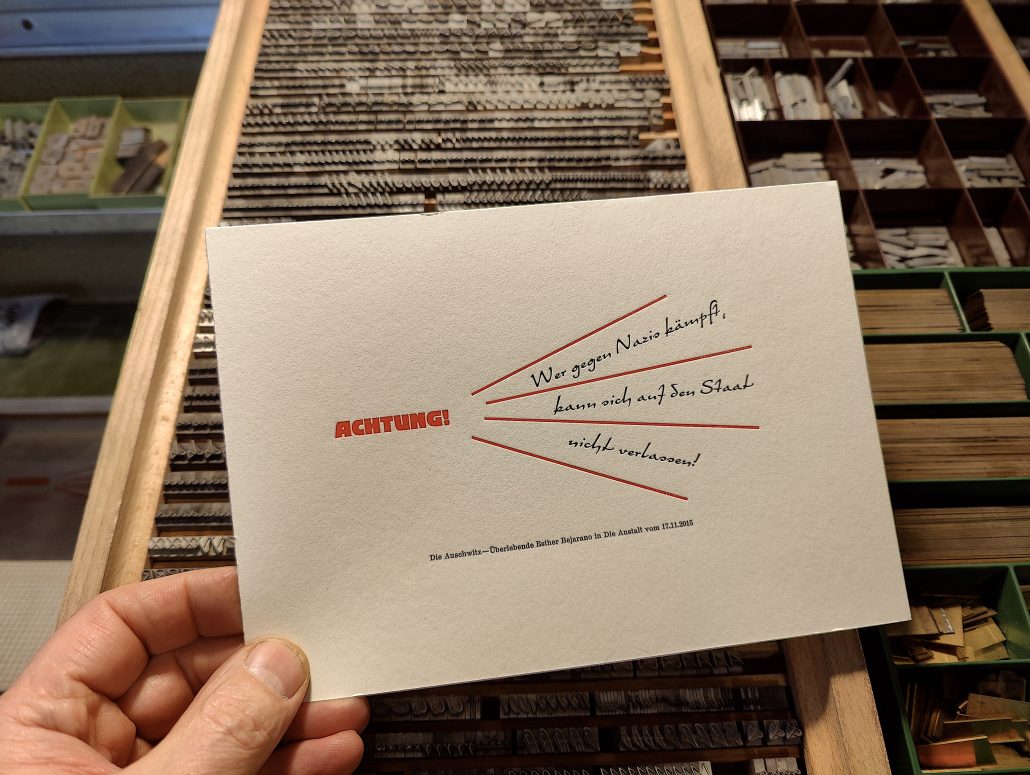 ACHTUNG!
Wer gegen Nazis kämpft,
kann sich auf den Staat
nicht verlassen!
Die Auschwitz—Überlebende Esther Bejarano in Die Anstalt vom 17.11.2015